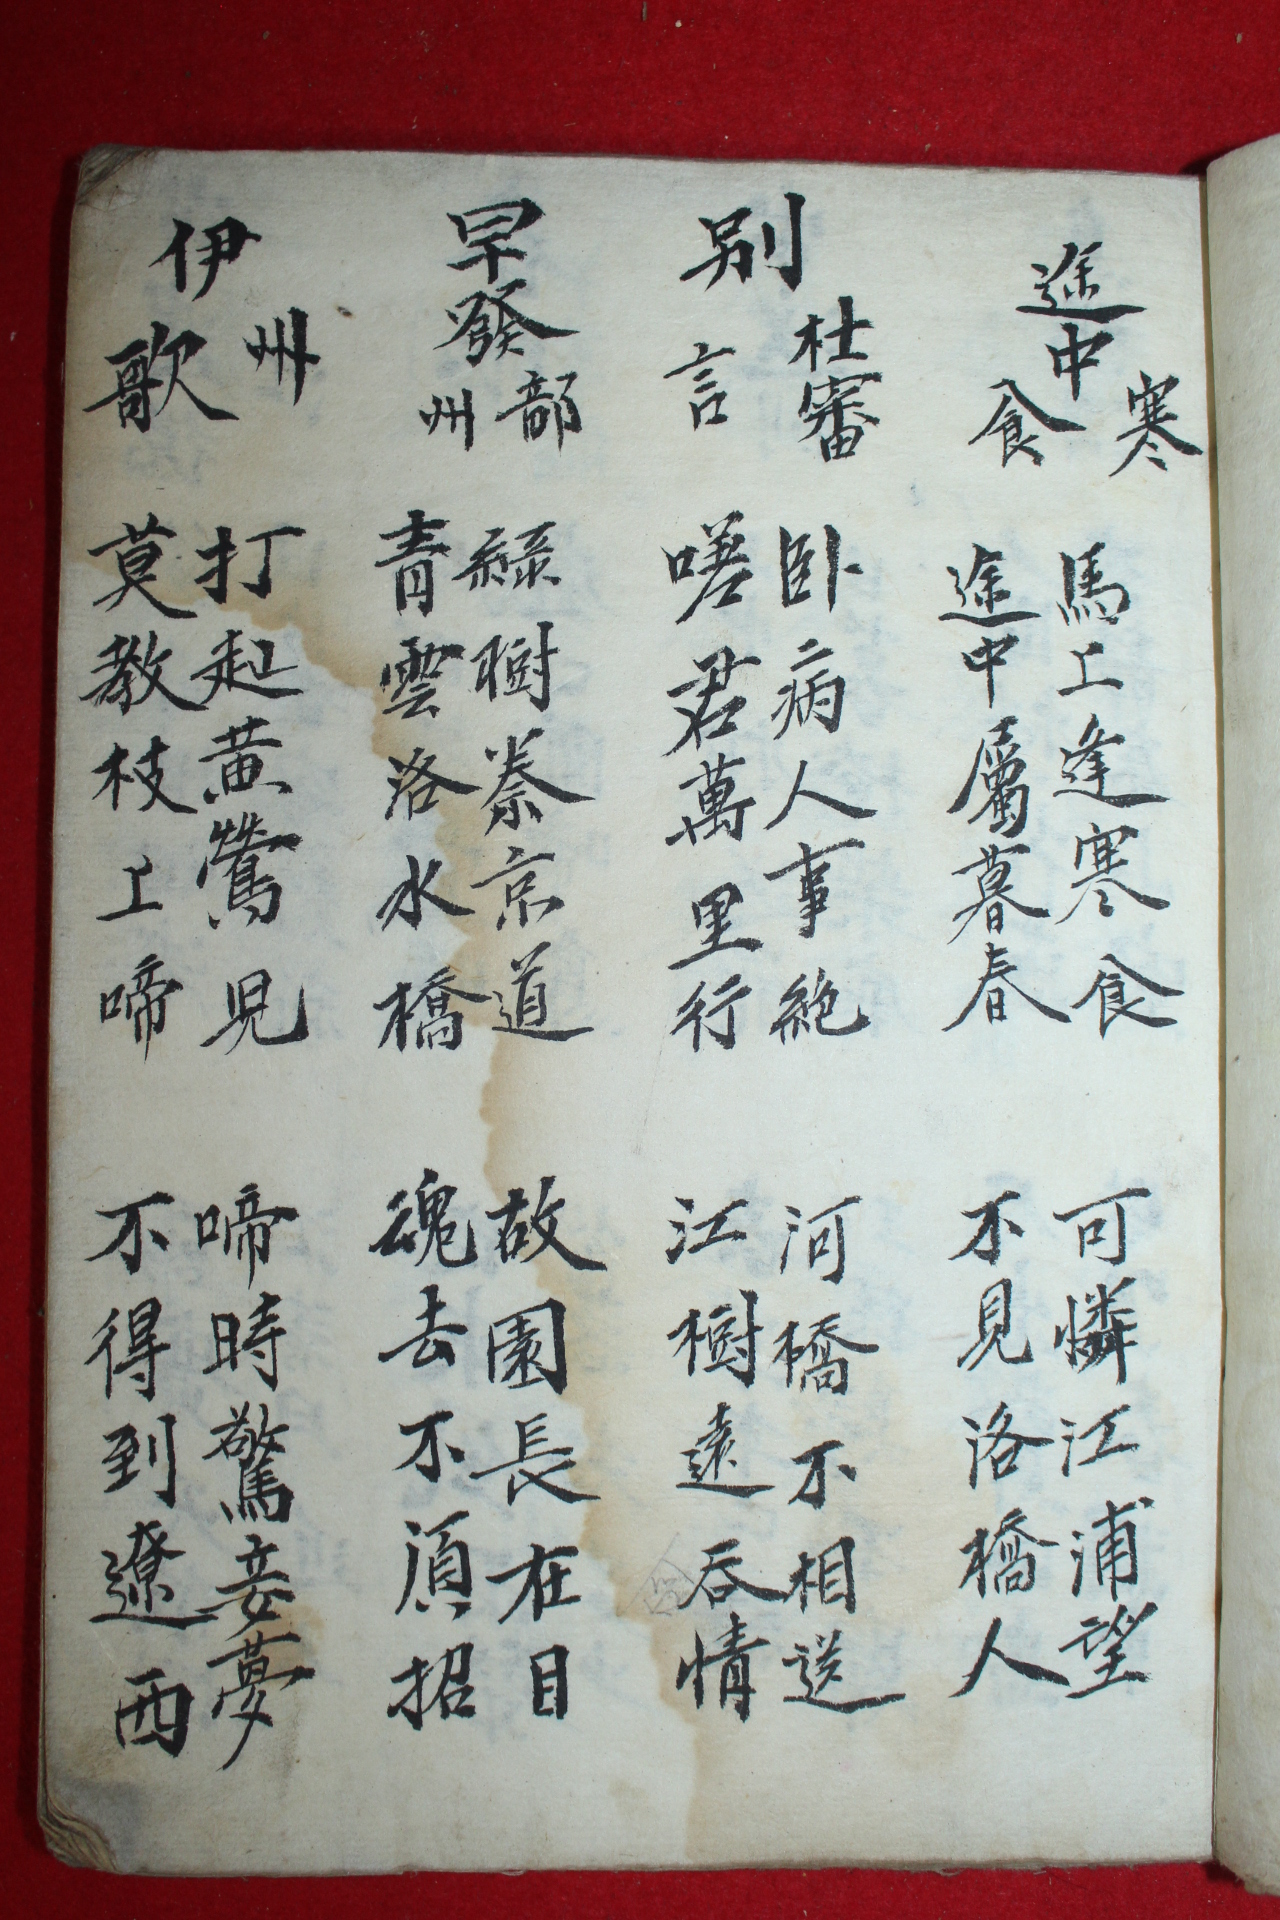 途中寒食
馬上逢寒食
途中屬暮春
可憐江浦望
不見洛橋人
別杜審言
卧病人事絶
嗟君萬里行
河橋不相送
江樹遠吞情
早發部州
綠樹秦京道
青雲洛水橋
故園長在目
魂去不須招
伊州歌
打起黃鶯兒
莫教枝上啼
啼時驚妾夢
不得到遼西